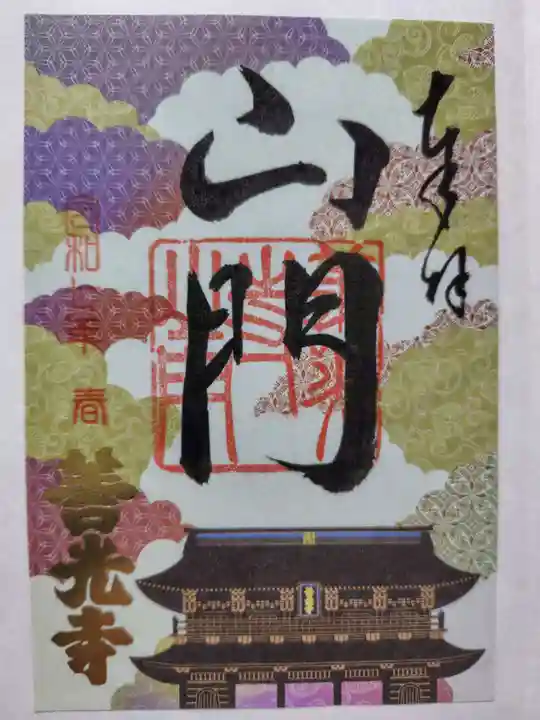 奉拝
山門
令和七年 春
善光寺